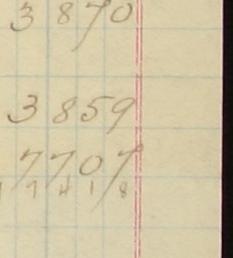 3870
3859
7707
7418